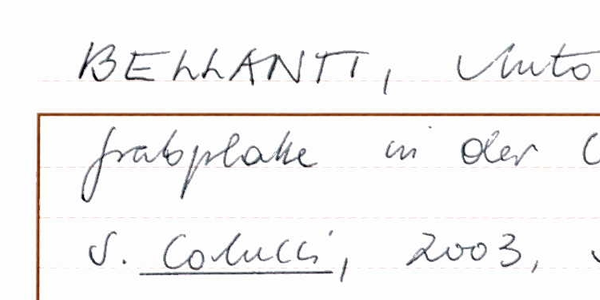 BELLANTI, Anto
Grabplatte in der C
S. Colucci, 2003,